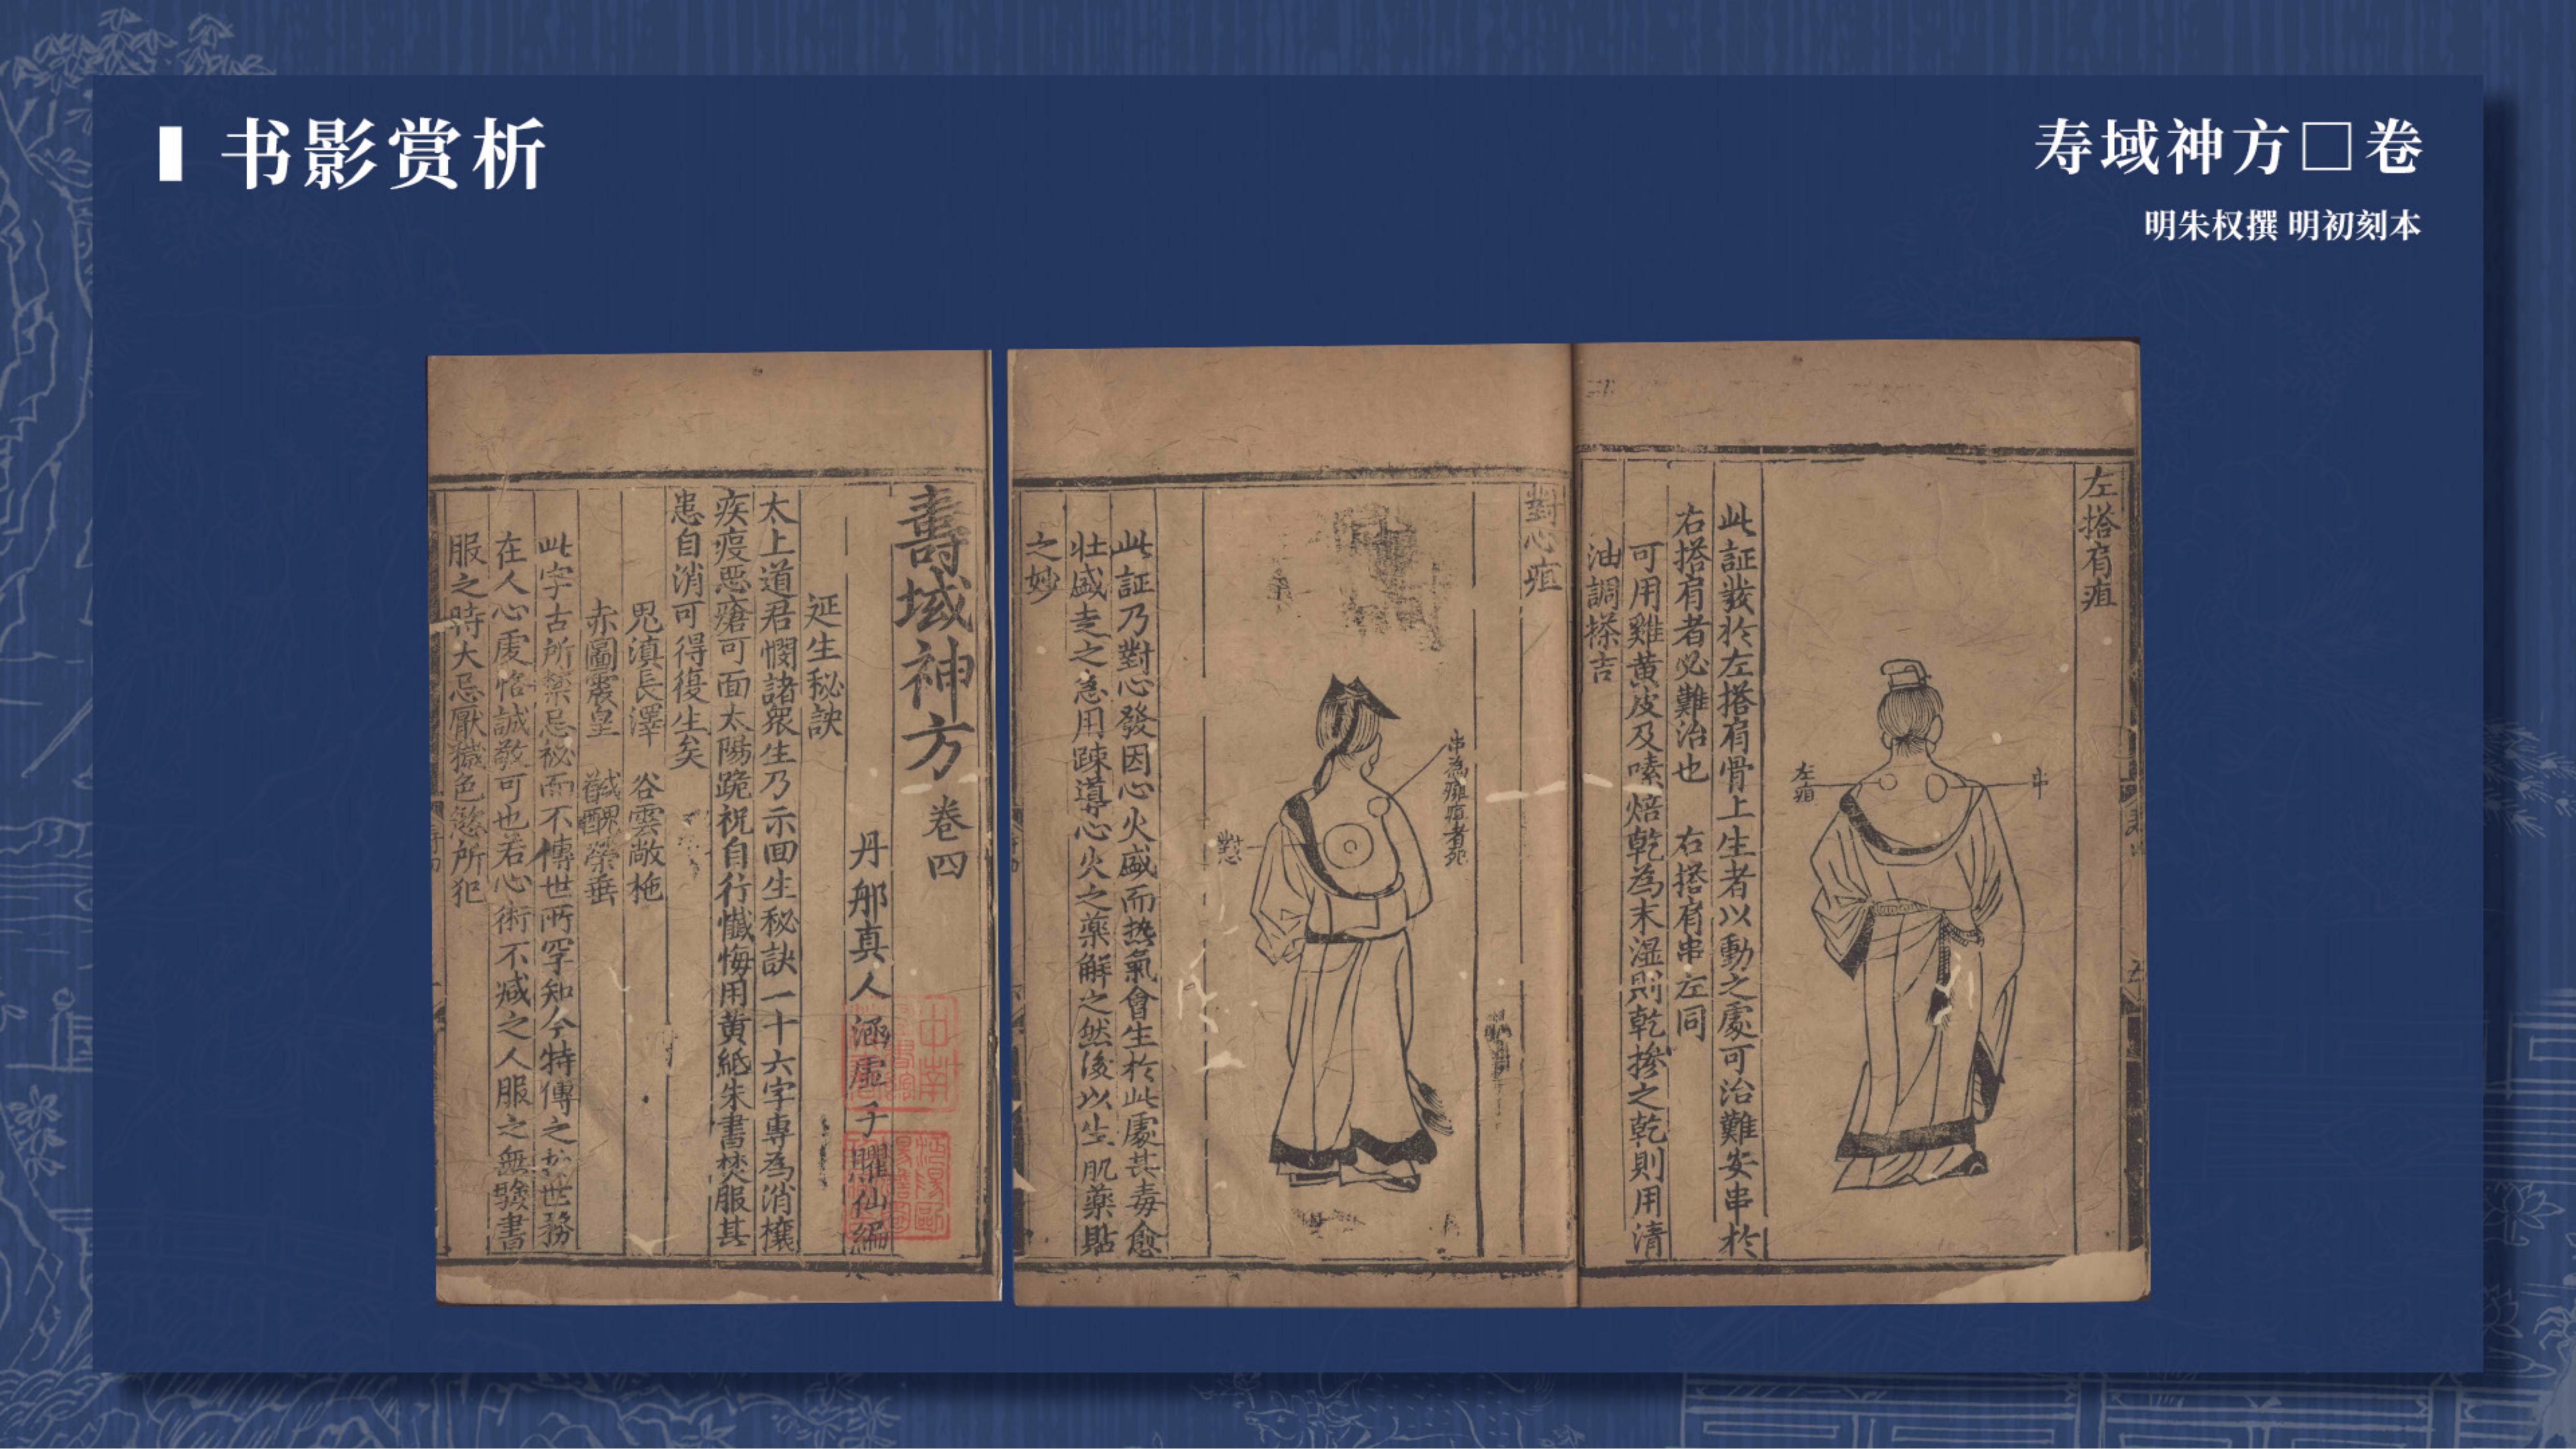 书影赏析
寿域神方□卷
明朱权撰 明初刻本
壽域神方 卷四
丹邱真人涵虛子臞仙編
延生秘訣
太上道君憫諸衆生乃示回生秘訣一十六字專為消禳
疾疫惡瘡可面太陽跪祝自行懺悔用黄紙朱書焚服其
患自消可得復生矣
滇長澤 谷雲敞栬
赤圖震皇 榮垂
此字古所禁忌祕而不傳世所罕知今特傳之於世務
在人心虔恪誠敬可也若心術不減之人服之無驗書
服之時大忌厭穢色慾所犯
左搭肩疽
左疽
串
此証發於左搭肩骨上生者以動之處可治難安串於
右搭肩者必難治也 右搭肩串左同
可用雞黄皮及嗉焙乾為末濕則乾摻之乾則用清
油調搽吉
對心疽
串為癰疽者死
對心
此証乃對心發因心火盛而热氣會生於此處其毒愈
壮盛走之急用踈導心火之藥解之然後以生肌藥貼
之妙